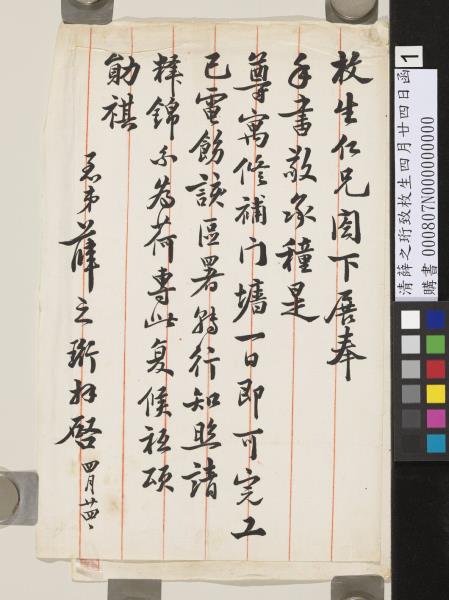 枚生仁兄閣下展奉
手書敬承種是
尊寓修補門墻一日即可完工
已電飭該區署轉行知照請
釋錦念為荷專此复候祗頌
勛祺
愚弟薛之珩拜啓 四月廿四
1
清薛之珩致枚生四月廿四日函
購書 000807N000000000